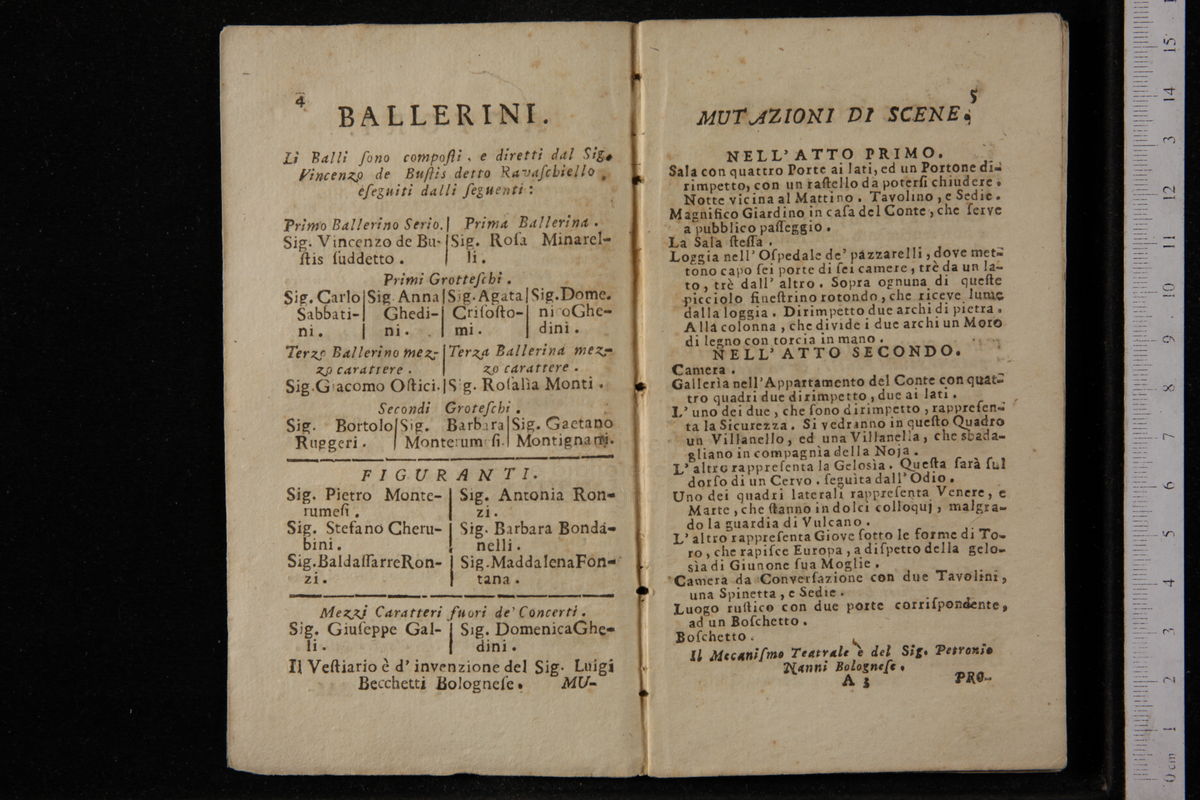 4
BALLERINI.
Li Balli ſono compoſti, e diretti dal Sig.
Vincenzo de Buſtis detto Ravaſchiello,
eſeguiti dalli ſeguenti:
Primo Ballerino Serio. | Prima Ballerina.
Sig. Vincenzo de Bu- | Sig. Roſa Minarel-
ſtis ſuddetto. | li.
Primi Grotteſchi.
Sig. Carlo | Sig. Anna | Sig. Agata | Sig. Dome.
Sabbati- | Ghedi- | Criſoſto- | nico Ghe-
ni. | ni. | mi. | dini.
Terzo Ballerino mez- | Terza Ballerina mez-
zo carattere. | zo carattere.
Sig. Giacomo Oſtici. | Sig. Roſalìa Monti.
Secondi Groteſchi.
Sig. Bortolo | Sig. Barbara | Sig. Gaetano
Ruggeri. | Monterumeſi. | Montignani.
FIGURANTI.
Sig. Pietro Monte- | Sig. Antonia Ron-
rumeſi. | zi.
Sig. Stefano Cheru- | Sig. Barbara Bonda-
bini. | nelli.
Sig. Baldaſſarre Ron- | Sig. Maddalena Fon-
zi. | tana.
Mezzi Caratteri fuori de' Concerti.
Sig. Giuſeppe Gal- | Sig. Domenica Ghe-
li. | dini.
Il Veſtiario è d' invenzione del Sig. Luigi
Becchetti Bologneſe. MU-
5
MUTAZIONI DI SCENE.
NELL' ATTO PRIMO.
Sala con quattro Porte ai lati, ed un Portone di-
rimpetto, con un raſtello da poterſi chiudere.
Notte vicina al Mattino. Tavolino, e Sedie.
Magnifico Giardino in caſa del Conte, che ſerve
a pubblico paſſeggio.
La Sala ſteſſa.
Loggia nell' Oſpedale de' pazzarelli, dove met-
tono capo ſei porte di ſei camere, trè da un la-
to, trè dall' altro. Sopra ognuna di queſte
picciolo fineſtrino rotondo, che riceve lume
dalla loggia. Dirimpetto due archi di pietra.
Alla colonna, che divide i due archi un Moro
di legno con torcia in mano.
NELL' ATTO SECONDO.
Camera.
Gallerìa nell' Appartamento del Conte con quat-
tro quadri due dirimpetto, due ai lati.
L' uno dei due, che ſono dirimpetto, rappreſen-
ta la Sicurezza. Si vedranno in queſto Quadro
un Villanello, ed una Villanella, che sbada-
gliano in compagnìa della Noja.
L' altro rappreſenta la Geloſìa. Queſta ſarà ſul
dorſo di un Cervo, ſeguìta dall' Odio.
Uno dei quadri laterali rappreſenta Venere, e
Marte, che ſtanno in dolci colloquj, malgra-
do la guardia di Vulcano.
L' altro rappreſenta Giove ſotto le forme di To-
ro, che rapiſce Europa, a diſpetto della gelo-
sìa di Giunone ſua Moglie.
Camera da Converſazione con due Tavolini,
una Spinetta, e Sedie.
Luogo ruſtico con due porte corriſpondente,
ad un Boſchetto.
Boſchetto.
Il Mecaniſmo Teatrale è del Sig. Petronio
Nanni Bologneſe.
A 3 PRO-
0 cm 1 2 3 4 5 6 7 8 9 10 11 12 13 14 15